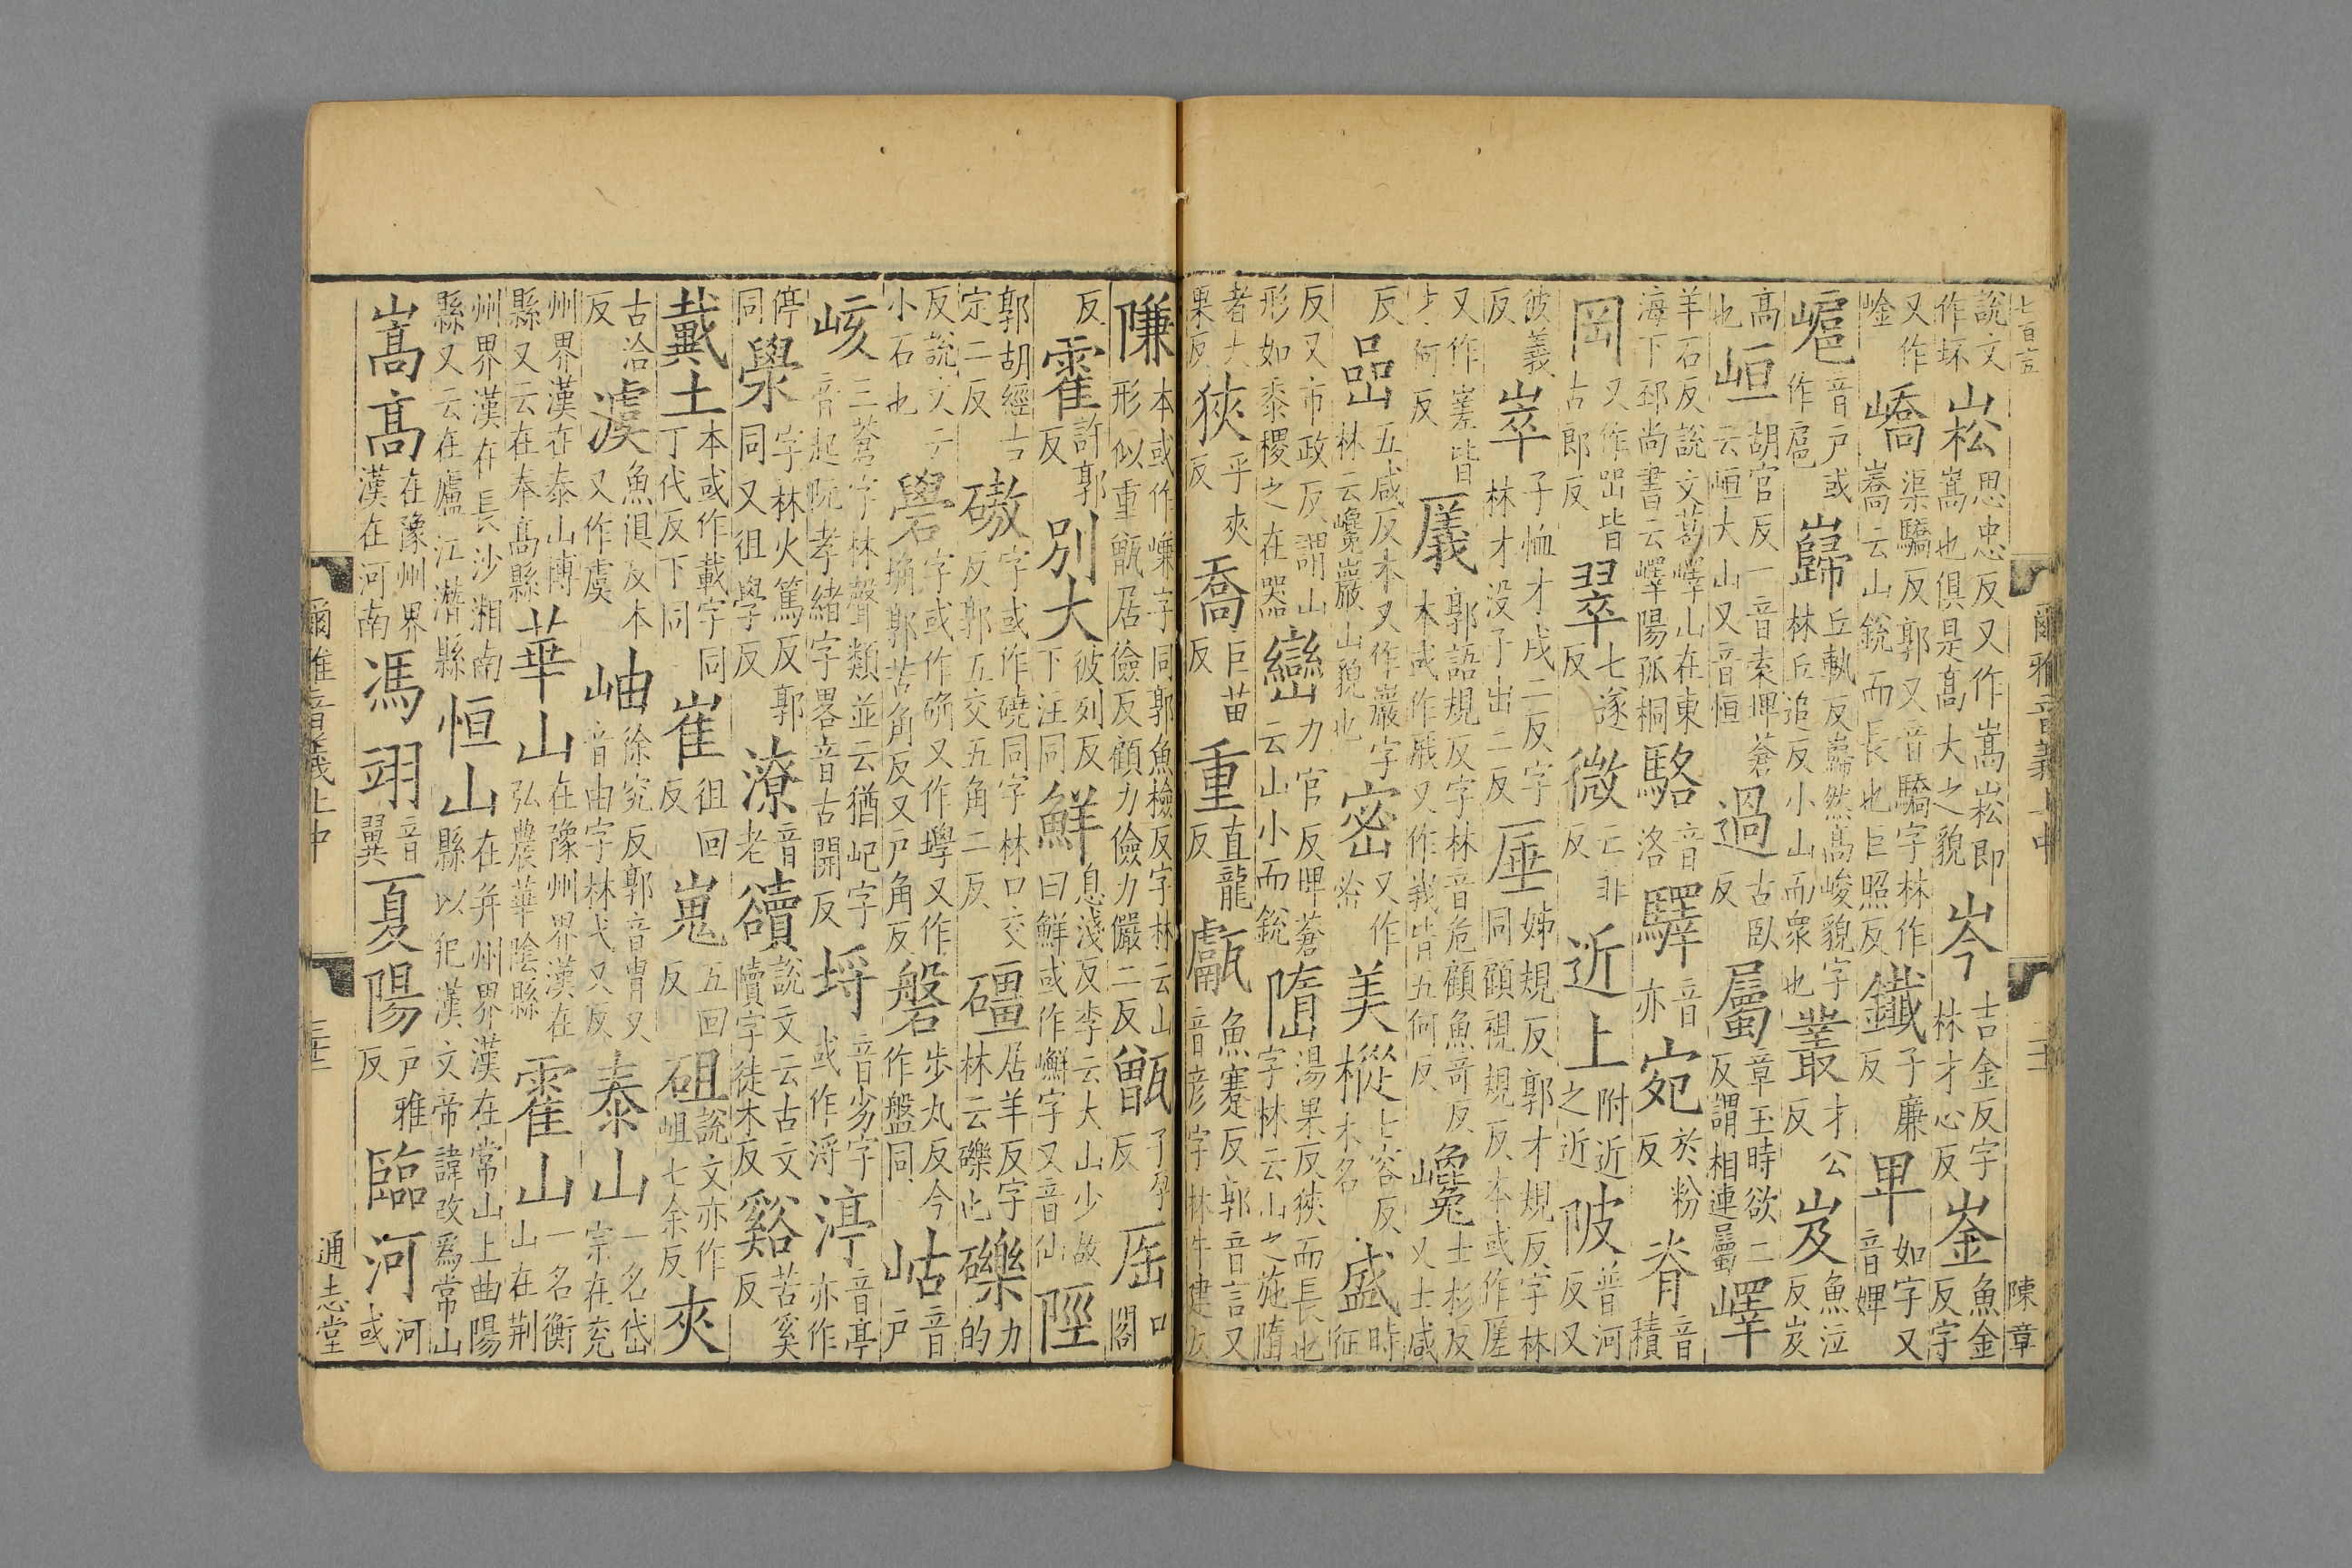 七百五
爾雅音義上中
二十
陳章
說文作坏崧思忠反又作嵩崧即嵩也俱是高大之貌岑吉金反字林才心反崟魚金反字
又作崯嶠渠驕反郭又音驕字林作嶠云山銳而長也巨照反鐵子廉反卑如字又音婢
嶇音戶或作扈巋丘軌反巋然高峻貌字林丘追反小山而衆也叢才公反岌魚泣反岌
高也峘胡官反一音袁埤蒼云峘大山又音恒過古臥反屬章玉時欲二反謂相連屬嶧
羊石反說文葛嶧山在東海下邳尚書云嶧陽孤桐駱音洛驛音亦宛於粉反脊音積
岡又作㟠皆古郎反翠七遂反微亡非反近上附近之近陂普河反又
彼義反崒子恤才戌二反字林才没子出二反厜姊規反郭才規反字林同顧視規反本或作厓
又作嵳皆才何反㕒郭語規反字林音危顧魚奇反本或作䧧又作峩皆五何反巉士杉反又士咸
反嵒五咸反本又作巖字林云巉巖山貌也密又作密美樅七容反木名盛時征
反又市政反謂山形如黍稷之在器巒力官反埤蒼云山小而銳隋湯果反狹而長也字林云山之施隋
者大果反狹乎夾反喬巨苗反重直龍反甗魚蹇反郭音言又音彦字林牛建反
隒本或作㟻字同郭魚檢反字林云山形似重甑居儉反顧力儉力儼二反甑子孕反厒口閤
反霍許郭反別大彼列反下注同鮮息淺反李云大山少故曰鮮或作嶰字又音仙陘
郭胡經古定二反磝字或作磽同字林口交反郭五交五角二反礓居羊反字林云礫也礫力的
反說文云小石也礐字或作确又作㙾又作埆郭苦角反又戶角反磐步丸反今作盤同岵音戶
峐三蒼字林聲類並云猶屺字音起阮孝緒字畧音古開反埒音劣字或作浖渟音亭亦作
停同澩字林火篤反郭同又徂學反潦音老𧸉說文云古文隫字徒木反谿苦奚反
戴土本或作載字同丁代反下同崔徂回反嵬五回反砠說文亦作岨七余反夾
古洽反澞魚俱反本又作虞岫徐究反郭音胄又音由字林弋又反泰山一名岱宗在兗
州界漢在泰山博縣又云在奉高縣華山在豫州界漢在弘農華陰縣霍山一名衡山在荆
州界漢在長沙湘南縣又云在廬江潛縣恒山在并州界漢在常山上曲陽縣以犯漢文帝諱改爲常山
嵩高在豫州界漢在河南馮翊音翼夏陽戶雅反臨河河或
爾雅音義上中
通志堂